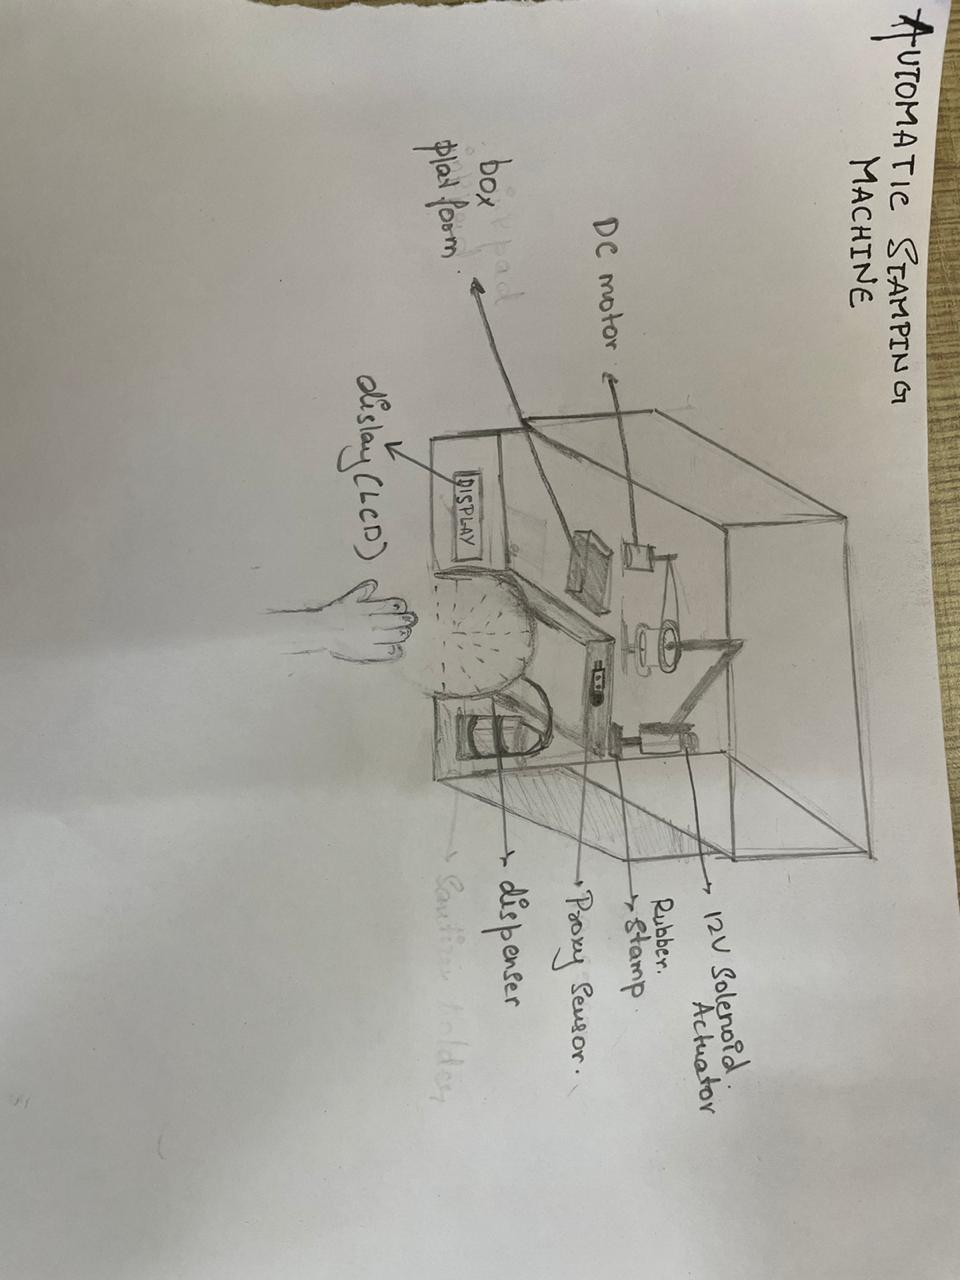 AUTOMATIC STAMPING
MACHINE
DC motor.
box
platform.
dislay (LCD)
DISPLAY
12V Solenoid.
Actuator
Rubber.
Stamp.
Proxy Sensor.
dispenser